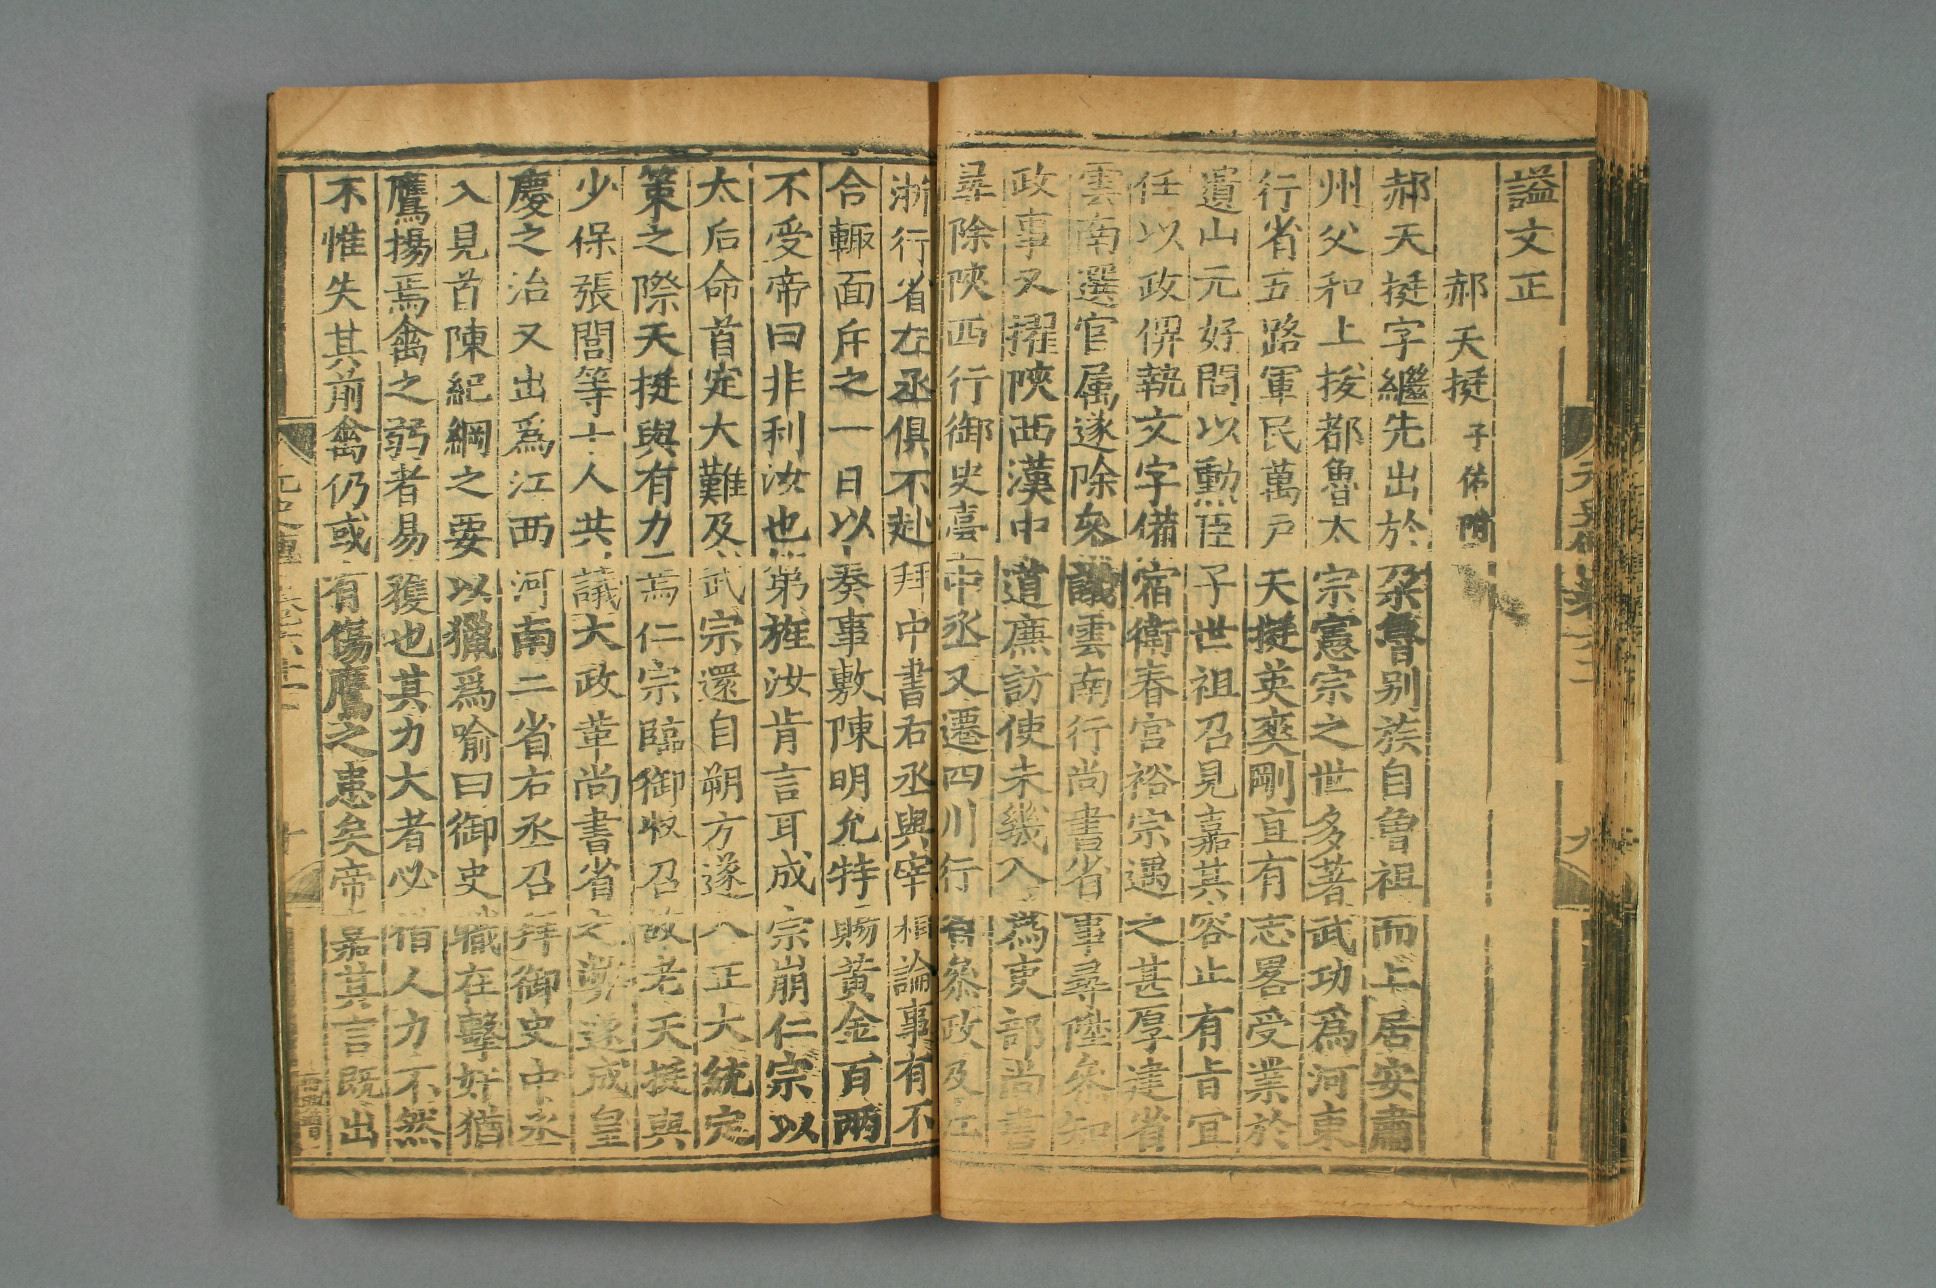 謚文正
郝天挺 子佑附
郝天挺字繼先出於朶魯别族自曾祖而上居安肅
州父和上拔都魯太宗憲宗之世多著武功爲河東
行省五路軍民萬戸天挺英爽剛直有志畧受業於
遺山元好問以勳臣子世祖召見嘉其容止有㫖宜
任以政俾執文字備宿衛春宫裕宗遇之甚厚建省
雲南選官属遂除叅議雲南行尚書省事尋陞叅知
政事又擢陜西漢中道廉訪使未幾入爲吏部尚書
尋除陜西行御史臺中丞又遷四川行省叅政及江
浙行省左丞俱不赴拜中書右丞與宰相論事有不
合輙面斥之一日以奏事敷陳明允特賜黄金百兩
不受帝曰非利汝也第旌汝肯言耳成宗崩仁宗以
太后命首定大難及武宗還自朔方遂入正大統定
策之際天挺與有力焉仁宗臨御收召故老天挺與
少保張閭等十人共議大政革尚書省之弊遂成皇
慶之治又出爲江西河南二省右丞召拜御史中丞
入見首陳紀綱之要以獵爲喻曰御史職在擊奸猶
鷹揚焉禽之弱者易獲也其力大者必借人力不然
不惟失其前禽仍或有傷鷹之患矣帝嘉其言既出
元史傳 卷六十一
十